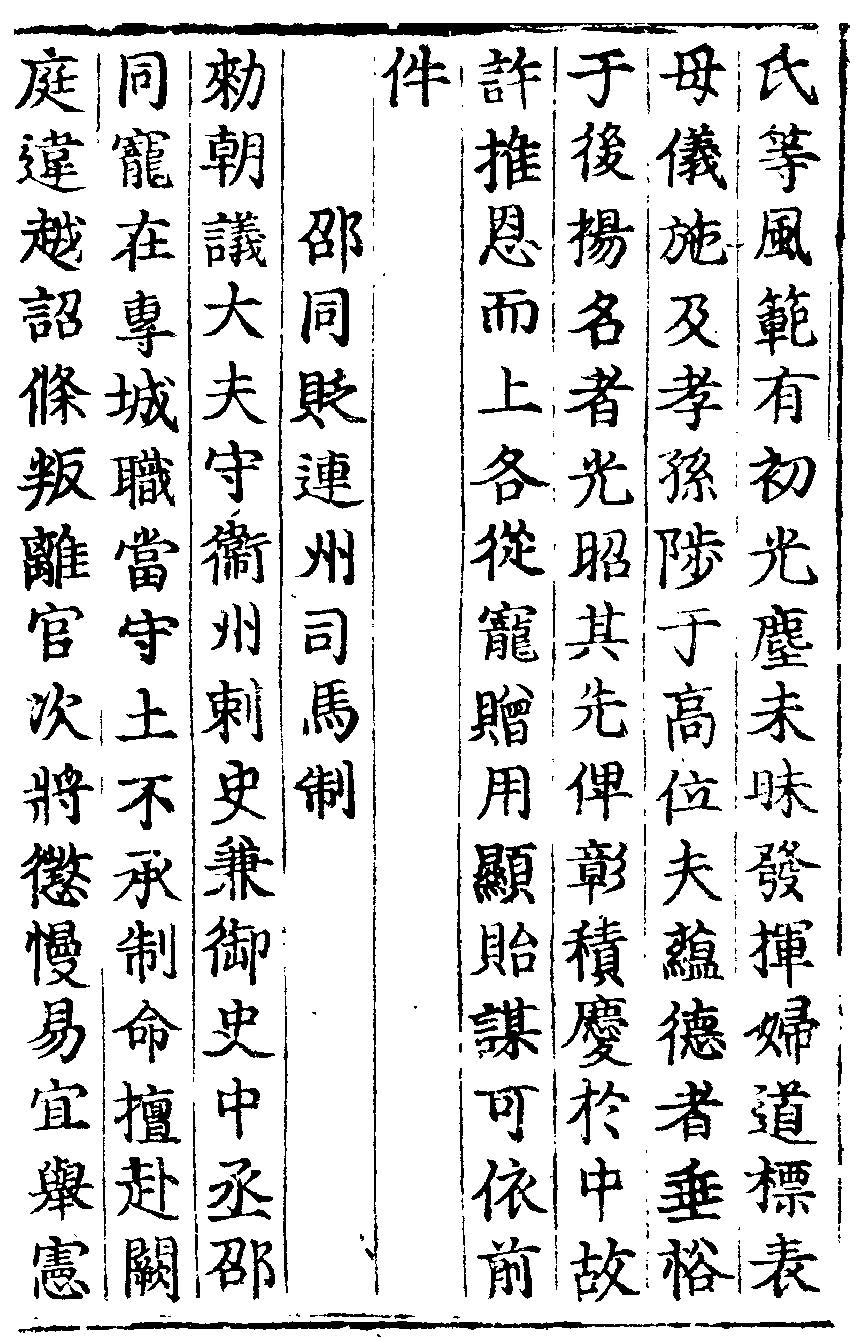 氏等風範有初光塵未昧發揮婦道標表
母儀施及孝孫陟于高位夫蘊德者垂裕
于後揚名者光昭其先俾彰積慶於中故
許推恩而上各從寵贈用顯貽謀可依前
件
邵同貶連州司馬制
勑朝議大夫守衞州刺史兼御史中丞邵
同寵在專城職當守土不承制命擅赴闕
庭違越詔條叛離官次將懲慢易宜舉憲